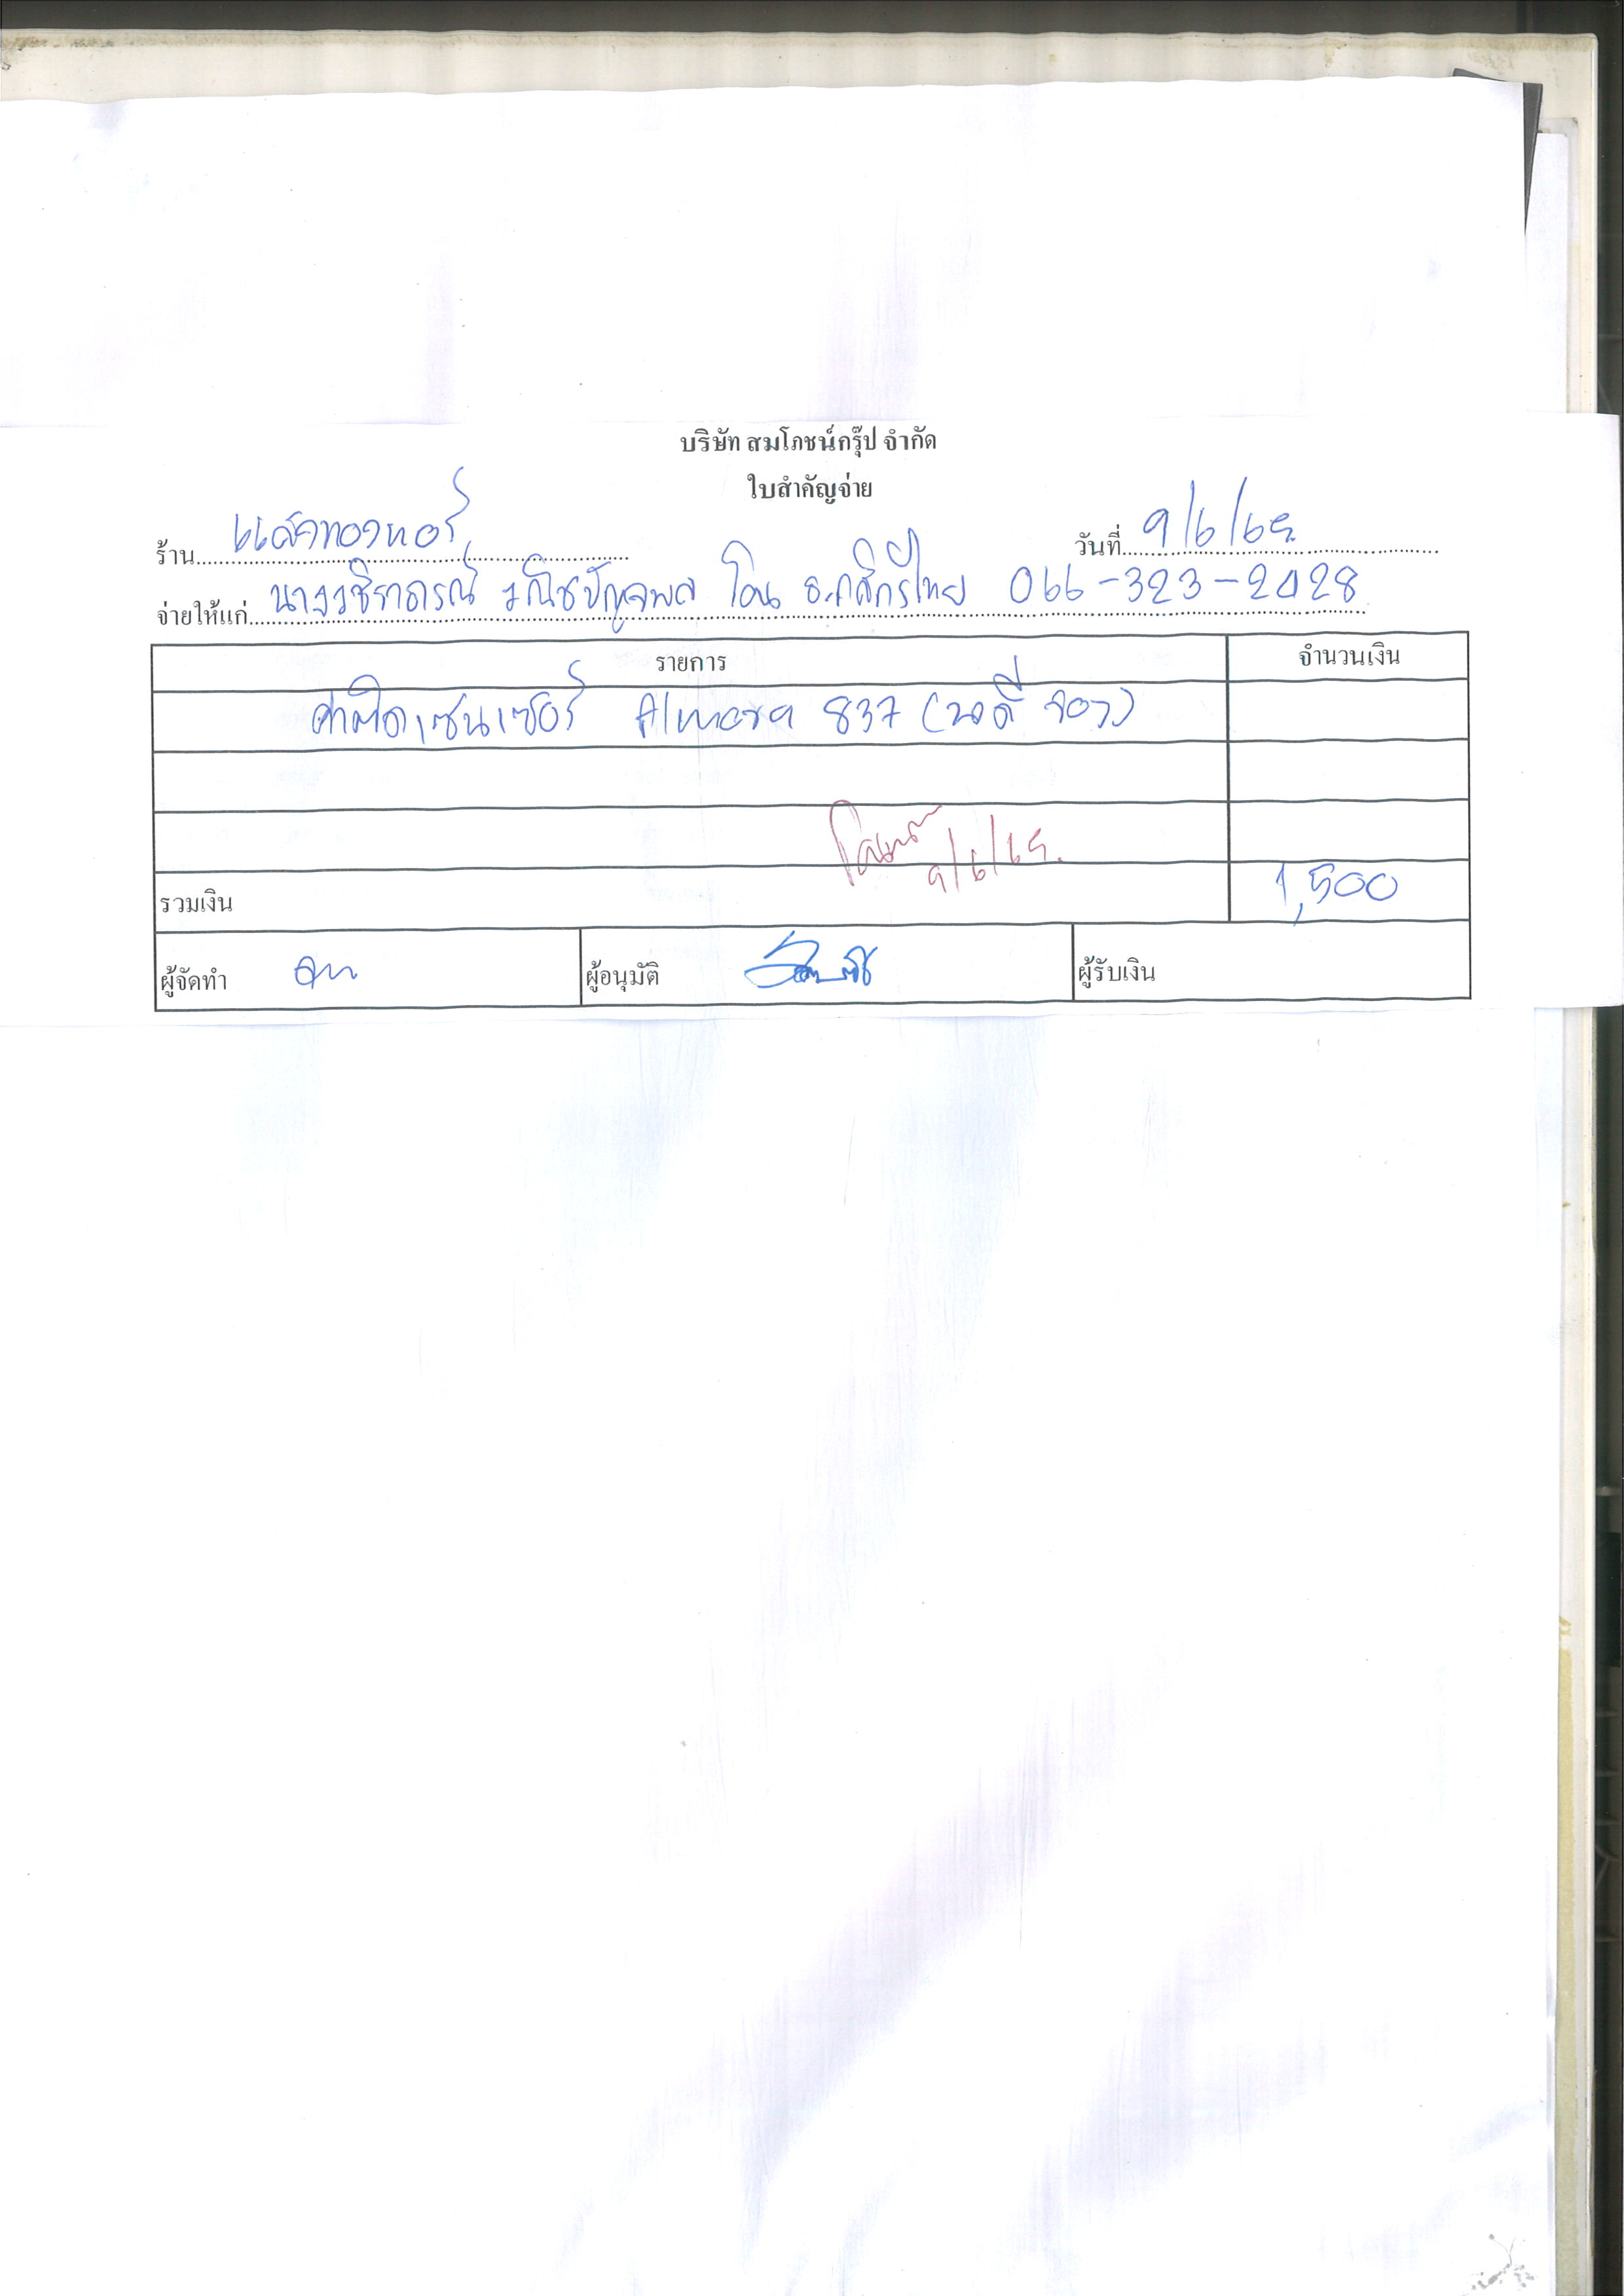 บริษัท สมโภชน์กรุ๊ป จำกัด
ใบสำคัญจ่าย
ร้าน วันที่ 9/6/65
จ่ายให้แก่ นางวชิราภรณ์ วณิชปัญจพล โอน ธ.กสิกรไทย 066-323-2028
รายการ จำนวนเงิน
ค่าติดเซนเซอร์ Almera 837
9/6/65
รวมเงิน 1,500
ผู้จัดทำ ผู้อนุมัติ ผู้รับเงิน